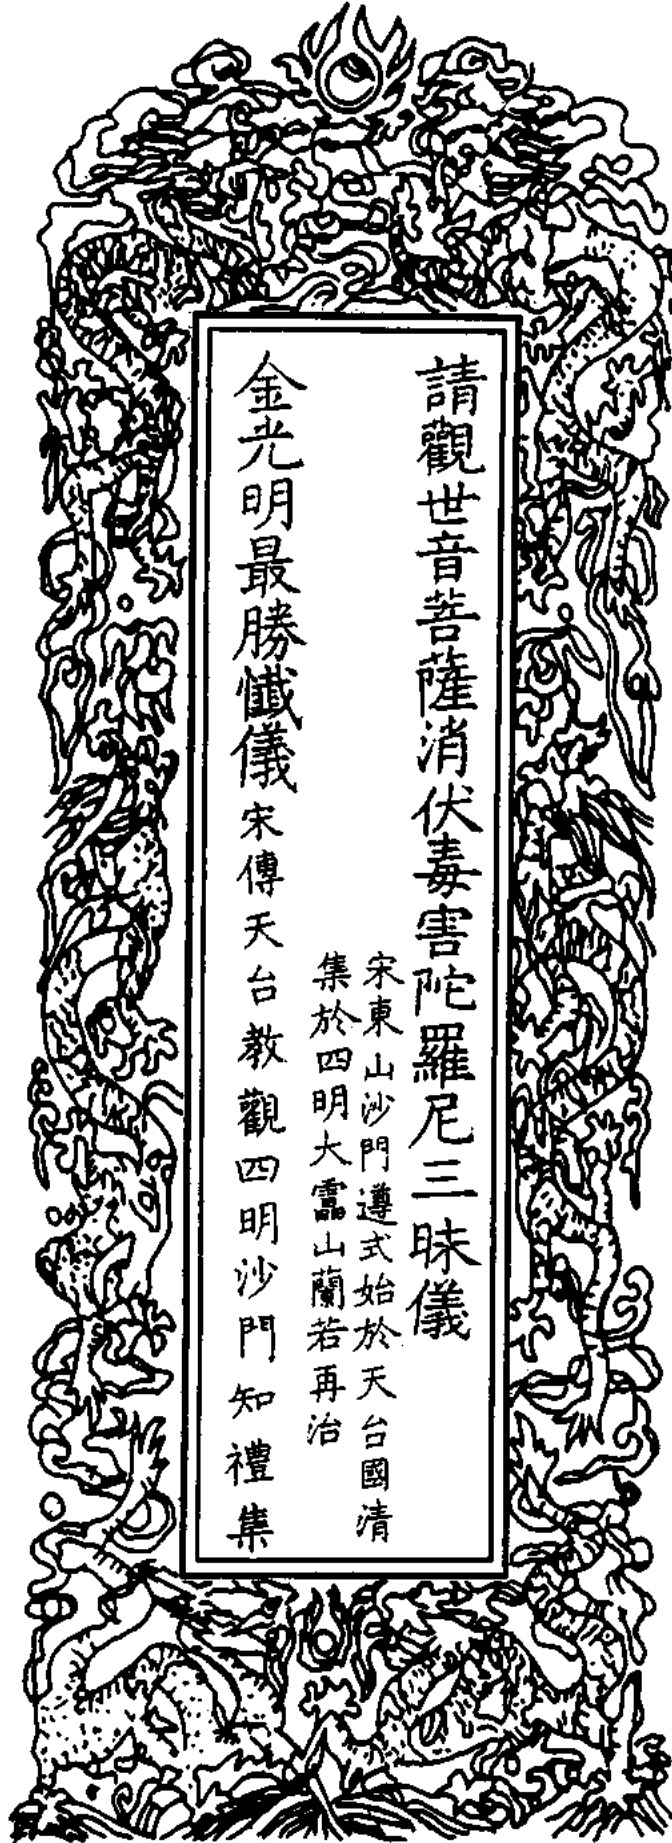 請觀世音菩薩消伏毒害陀羅尼三昧儀
宋東山沙門遵式始於天台國清
集於四明大靁山蘭若再治
金光明最勝懺儀宋傳天台教觀四明沙門知禮集